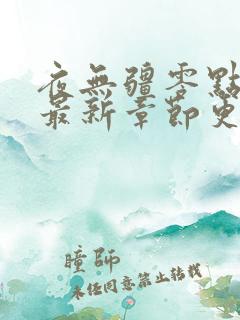 夜無疆零點
最新章節更
瞳師
未經同意禁止轉載